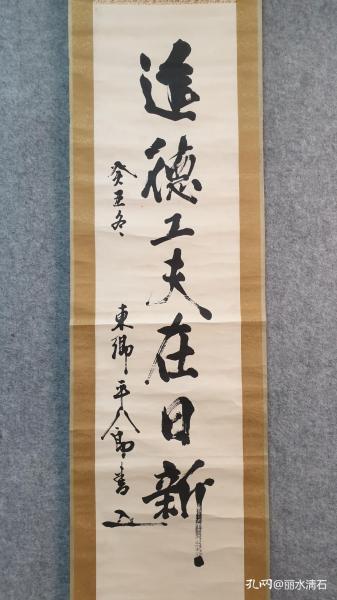 道德工夫在日新
癸丑冬
東郷平八郎書
孔网@丽水清石